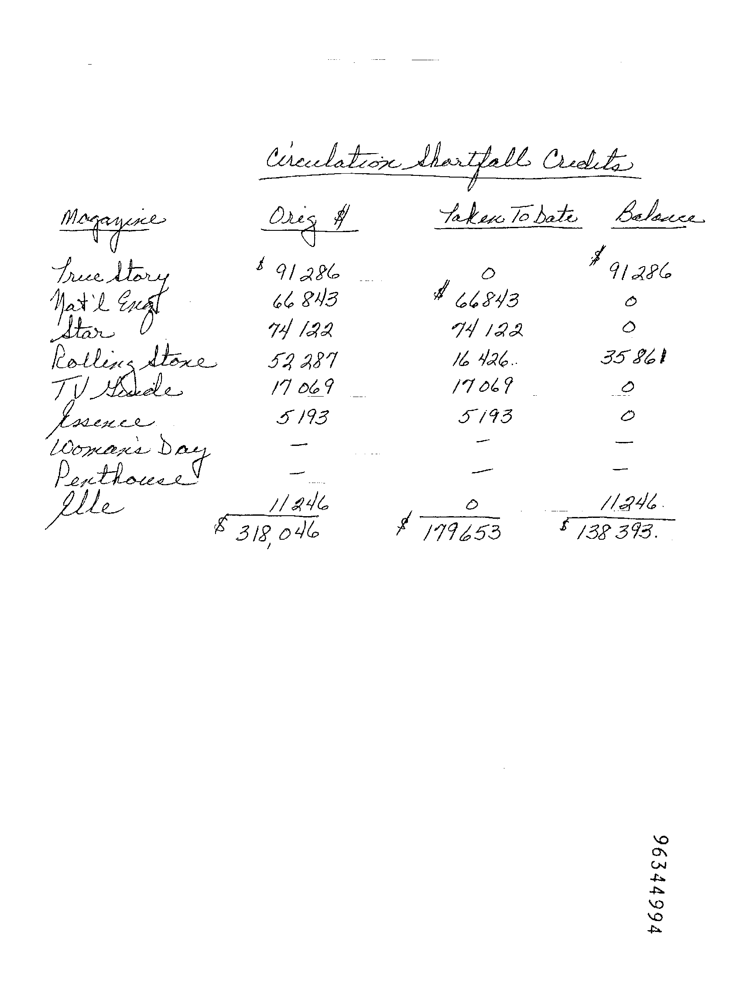 Circulation Shortfall Credits
Magazine Orig $ Taken To Date Balance
True Story $ 91286 0 $ 91286
Nat'l Enq 66843 $ 66843 0
Star 74122 74122 0
Rolling Stone 52287 16426. 35861
TV Guide 17069 17069 0
Essence 5193 5193 0
Woman's Day — — —
Penthouse — — —
Elle 11246 0 11246.
$ 318,046 $ 179653 $ 138393.
96344994